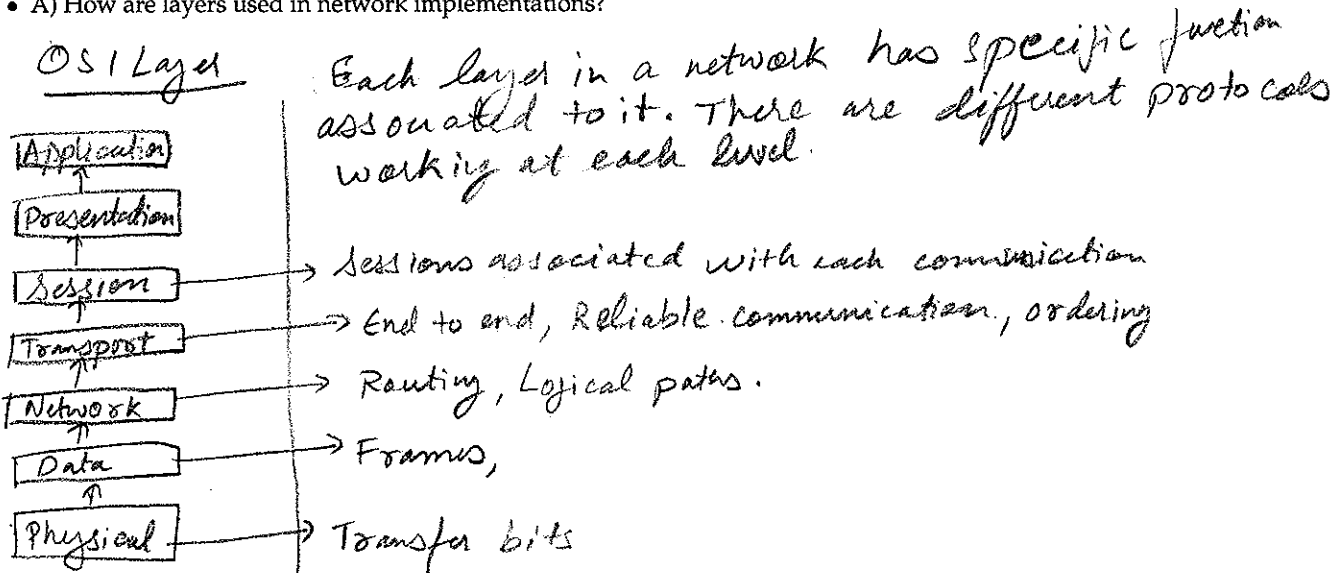 • A) How are layers used in network implementations?
OSI Layer
Each layer in a network has specific function
associated to it. There are different protocols
working at each level.
Application
Presentation
Session → Sessions associated with each communication
Transport → End to end, Reliable communication, ordering
Network → Routing, Logical paths.
Data → Frames,
Physical → Transfer bits